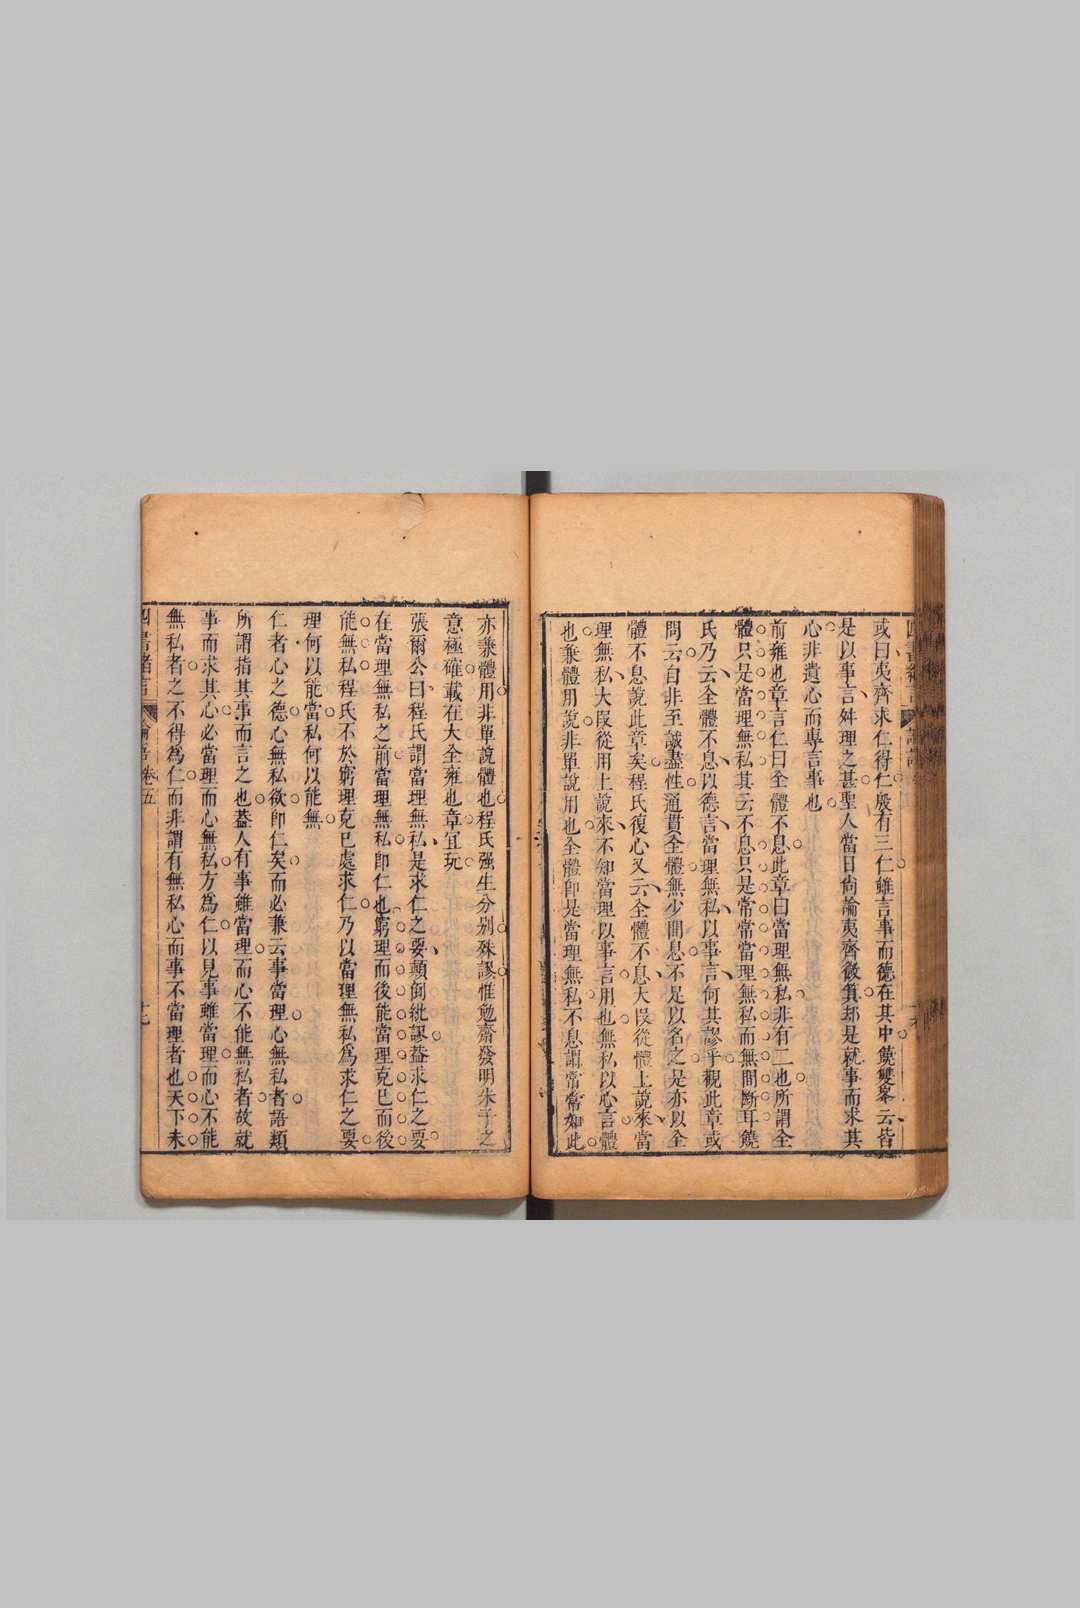 或曰夷齊求仁得仁殷有三仁雖言事而德在其中饒雙峯云皆
是以事言舛理之甚聖人當日尙論夷齊微箕却是就事而求其
心非遺心而專言事也
前雍也章言仁曰全體不息此章曰當理無私非有二也所謂全
體只是當理無私其云不息只是常常當理無私而無間斷耳饒
氏乃云全體不息以德言當理無私以事言何其謬乎觀此章或
問云自非至誠盡性通貫全體無少間息不足以名之是亦以全
體不息說此章矣程氏復心又云全體不息大段從體上說來當
理無私大段從用上說來不知當理以事言用也無私以心言體
也兼體用說非單說用也全體卽是當理無私不息謂常常如此
亦兼體用非單說體也程氏强生分别殊謬惟勉齋發明朱子之
意極確載在大全雍也章宜玩
張爾公曰程氏謂當理無私是求仁之要顛倒紕謬葢求仁之要
在當理無私之前當理無私卽仁也窮理而後能當理克已而後
能無私程氏不於窮理克已處求仁乃以當理無私爲求仁之要
理何以能當私何以能無
仁者心之德心無私欲卽仁矣而必兼云事當理心無私者語類
所謂指其事而言之也葢人有事雖當理而心不能無私者故就
事而求其心必當理而心無私方爲仁以見事雖當理而心不能
無私者之不得爲仁而非謂有無私心而事不當理者也天下未
四書緒言
論語卷五
十七